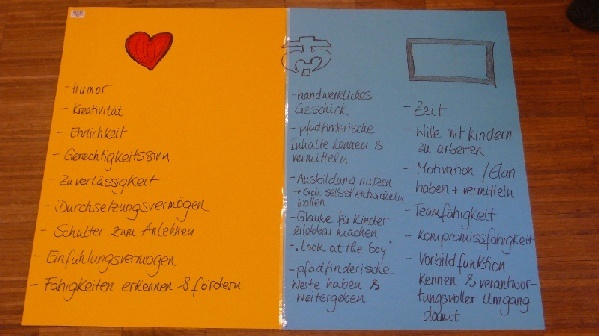 - Humor
- Kreativität
- Ehrlichkeit
- Gerechtigkeitssinn
- Zuverlässigkeit
- Durchsetzungsvermögen
- Schulter zum Anlehnen
- Einfühlungsvermögen
- Fähigkeiten erkennen & fördern
- handwerkliches
Geschick
- pfadfinderische
Inhalte kennen &
vermitteln
- Ausbildung nutzen
wollen
- Glaube für Kinder
erlebbar machen
- "Look at the boy"
- pfadfinderische
Werte haben &
weitergeben
- Zeit
- Wille mit Kindern
zu arbeiten
- Motivation / Elan
haben + vermitteln
- Teamfähigkeit
- Kompromissfähigkeit
- Vorbildfunktion
kennen & verantwor-
tungsvoller Umgang
damit